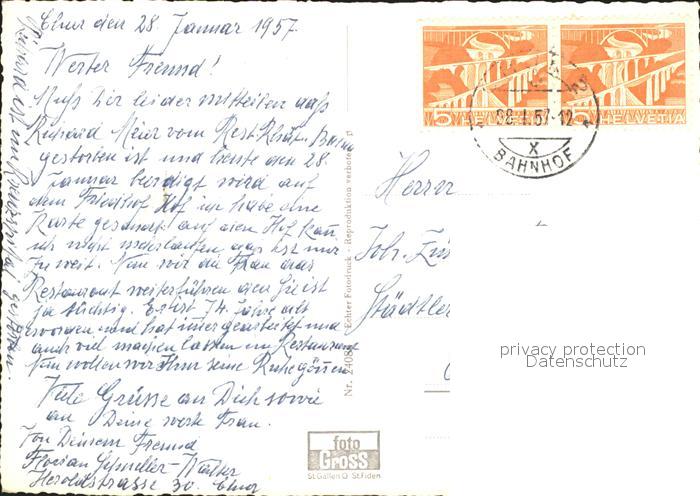 Chur den 28. Januar 1957.
Werter Freund!
Muss Dir leider mitteilen dass
Richard Meier vom Rest. Rhät. Bahn
gestorben ist und heute den 28.
Januar beerdigt wird auf
dem Friedhof Hof ich habe eine
Karte gesandt auf den Hof kann
ich nicht laufen das ist mir
zu weit. Nun wird die Frau das
Restaurant weiterführen den Sie ist
ja tüchtig. Er ist 74 Jahre alt
geworden und hat immer gearbeitet und
auch viel machen lassen im Restaurant
Nun wollen wir Ihm seine Ruhe gönnen
Viele Grüsse an Dich sowie
an Deine werte Frau.
Von Deinem Freund
Florian
Heroldstrasse 30. Chur
Richard ist im gestorben.
Echter Fotodruck - Reproduktion verboten
foto
GROSS
St.Gallen O St.Fiden
5 HELVETIA
5 HELVETIA
28.I.57-12
X
BAHNHOF
Herrn
Joh.
Städtle
privacy protection
Datenschutz